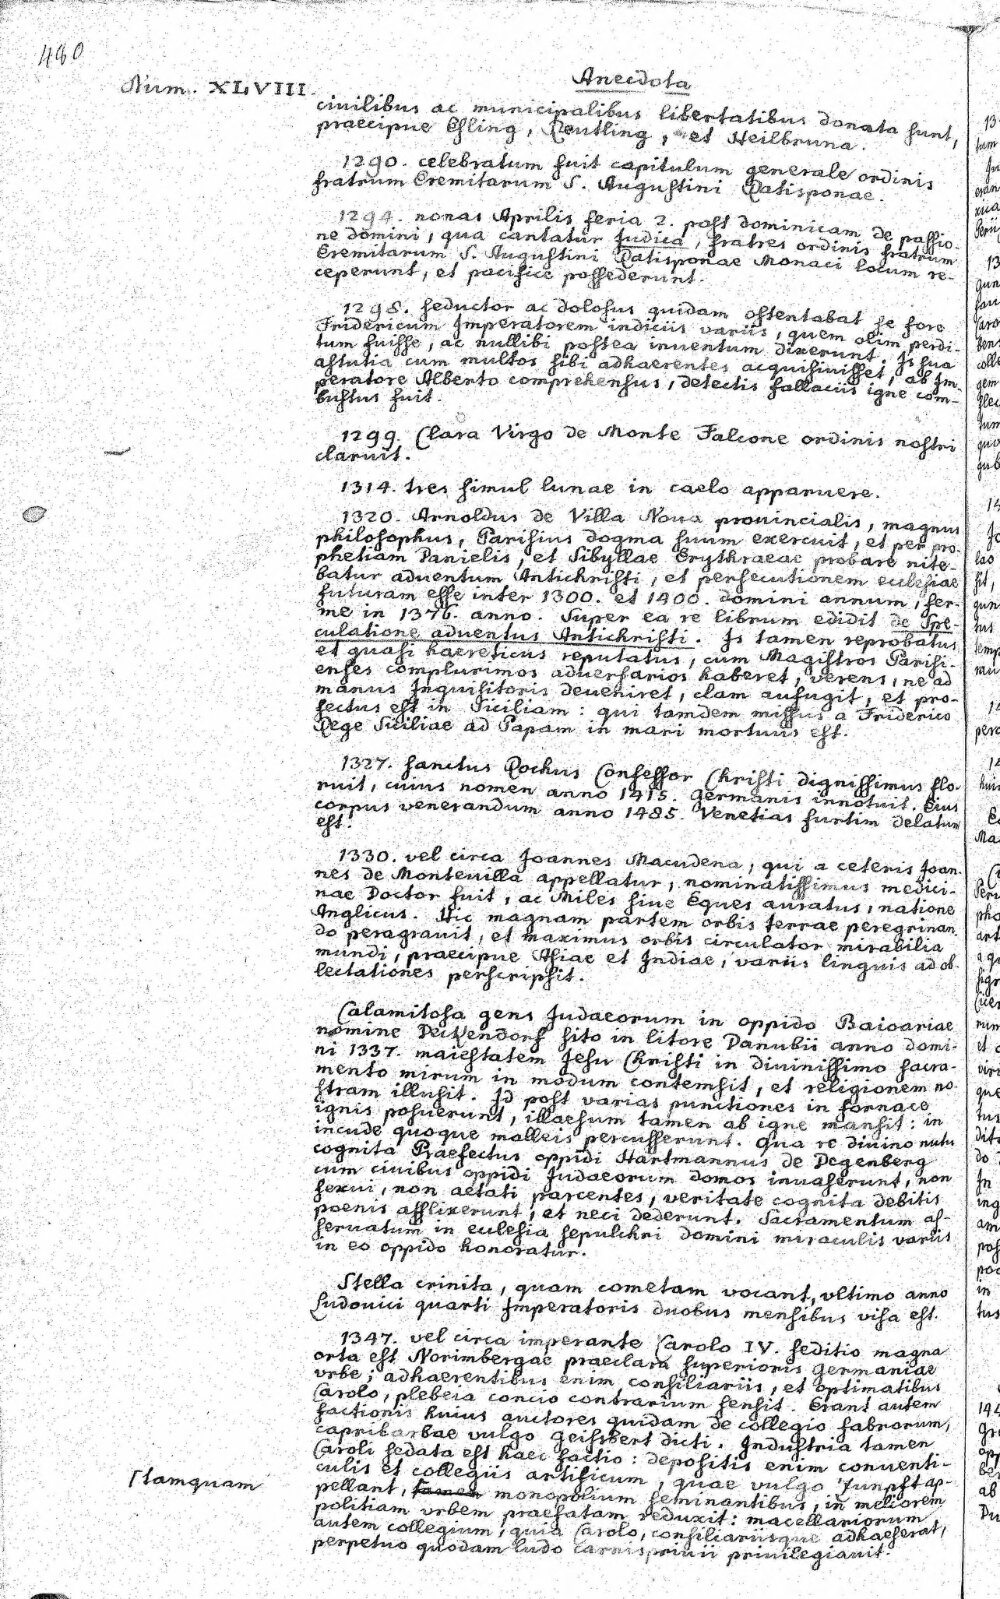 480
Num. XLVIII.
Anecdota
civilibus ac municipalibus libertatibus donata sunt,
praecipue Esling, Reutling, et Heilbruna.
1290. celebratum fuit capitulum generale ordinis
fratrum Eremitarum S. Augustini Ratisponae.
1294. nonas Aprilis feria 2. post dominicam de passio-
ne domini, qua cantatur Judica, fratres ordinis fratrum
Eremitarum S. Augustini Ratisponae Monaci locum re-
ceperunt, et pacifice possederunt.
1298. seductor ac dolosus quidam ostentabat se fore
Fridericum Imperatorem indiciis variis, quem olim perdi-
tum fuisse, ac nullibi postea inuentum dixerunt. Is sua
astutia cum multos sibi adhaerentes acquisiuisset, ab Im-
peratore Alberto comprehensus, detectis fallaciis igne com-
bustus fuit.
1299. Clara Virgo de Monte Falcone ordinis nostri
claruit.
1314. tres simul lunae in caelo apparuere.
1320. Arnoldus de Villa Noua prouincialis, magnus
philosophus, Parisius dogma suum exercuit, et per pro-
phetiam Danielis, et Sibyllae Erythraeae probare nite-
batur aduentum Antichristi, et persecutionem ecclesiae
futuram esse inter 1300. et 1400. domini annum, fer-
me in 1376. anno. Super ea re librum edidit de Spe-
culatione aduentus Antichristi. Is tamen reprobatus
et quasi haereticus reputatus, cum Magistros Parisi-
enses complurimos aduersarios haberet, verens, ne ad
manus Inquisitoris deueniret, clam aufugit, et pro-
fectus est in Siciliam: qui tamdem missus a Friderico
Rege Siciliae ad Papam in mari mortuus est.
1327. sanctus Rochus Confessor Christi dignissimus flo-
ruit, cuius nomen anno 1415. Germanis innotuit. Eius
corpus venerandum anno 1485. Venetias furtim delatum
est.
1330. vel circa Joannes Macudena, qui a ceteris Joan-
nes de Monteuilla appellatur, nominatissimus medici-
nae Doctor fuit, ac Miles siue Eques auratus, natione
Anglicus. Hic magnam partem orbis terrae peregrinan-
do peragrauit, et maximus orbis circulator mirabilia
mundi, praecipue Asiae et Indiae, variis linguis ad ob-
lectationes perscripsit.
Calamitosa gens Judaeorum in oppido Baioariae
nomine Deckendorf sito in litore Danubii anno domi-
ni 1337. maiestatem Jesu Christi in diuinissimo sacra-
mento mirum in modum contemsit, et religionem no-
stram illusit. Id post varias punctiones in fornace
ignis posuerunt, illaesum tamen ab igne mansit: in
incude quoque malleis percusserunt. Qua re diuino nutu
cognita Praefectus oppidi Hartmannus de Degenberg
cum ciuibus oppidi Judaeorum domos inuaserunt, non
sexui, non aetati parcentes, veritate cognita debitis
poenis afflixerunt, et neci dederunt. Sacramentum as-
seruatum in eclesia sepulchri domini miraculis variis
in eo oppido honoratur.
Stella crinita, quam cometam vocant, vltimo anno
Ludouici quarti Imperatoris duobus mensibus visa est.
1347. vel circa imperante Carolo IV. seditio magna
orta est Norimbergae praeclara superioris Germaniae
vrbe; adhaerentibus enim consiliariis, et optimatibus
Carolo, plebeia concio contrarium sensit. Erant autem
factionis huius auctores quidam de collegio fabrorum,
capribarbae vulgo Geissbert dicti. Industria tamen
Caroli sedata est haec factio: depositis enim conuenti-
culis et collegiis artificum, quae vulgo Zunpft ap-
pellant, tamen monopolium seminantibus, in meliorem
⌈tamquam
politiam vrbem praefatam reduxit: macellariorum
autem collegium, quia Carolo, consiliariisque adhaeserat,
perpetuo quodam ludo Carnispriuii priuilegiauit.